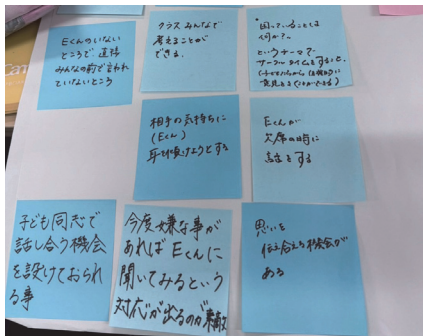 Eくんのいない
ところで 直接
みんなの前で言われ
ていないところ
クラス みんなで
考えることが
できる。
"困っていることは
何か?"
というテーマで
サークルタイムをすること。
(子どもたちから
意見を
相手の気持ちに
(Eくん)
耳を傾けようとする
Eくんが
欠席の時に
話をする
子ども同志で
話し合う機会
を設けておられ
る事
今度嫌な事が
あればEくんに
聞いてみるという
対応が出るのが素敵
思いを
伝え合える機会が
ある